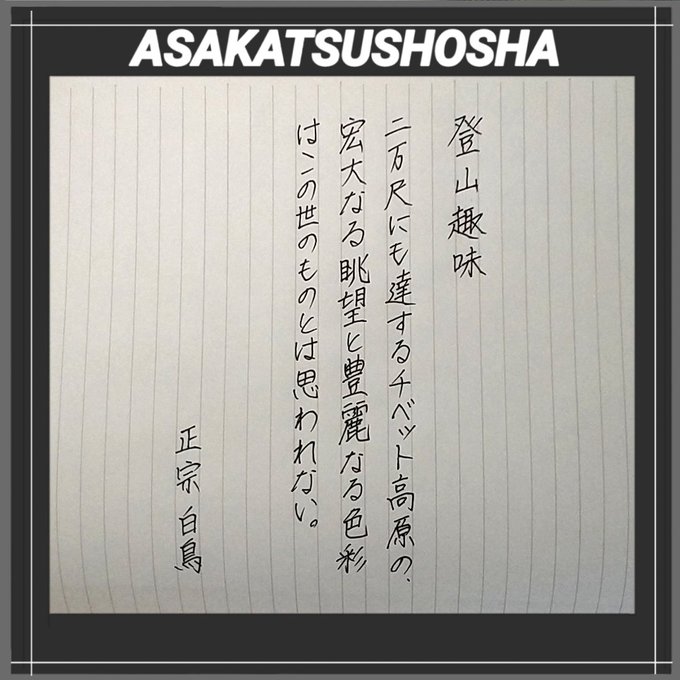 ASAKATSUSHOSHA
登山趣味
二万尺にも達するチベット高原の、
宏大なる眺望と豊麗なる色彩
はこの世のものとは思われない。
正宗白鳥